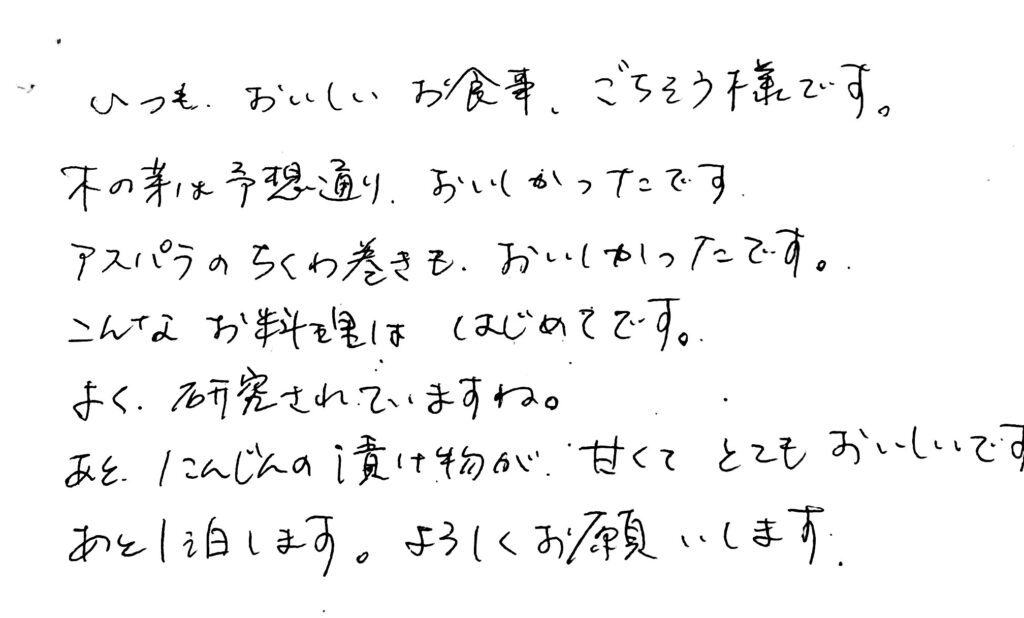 いつも、おいしいお食事、ごちそう様です。
木の芽は予想通り、おいしかったです
アスパラのちくわ巻きも、おいしかったです。
こんなお料理ははじめてです。
よく、研究されていますね。
あと、にんじんの漬け物が、甘くてとてもおいしいです
あと1泊します。よろしくお願いします.